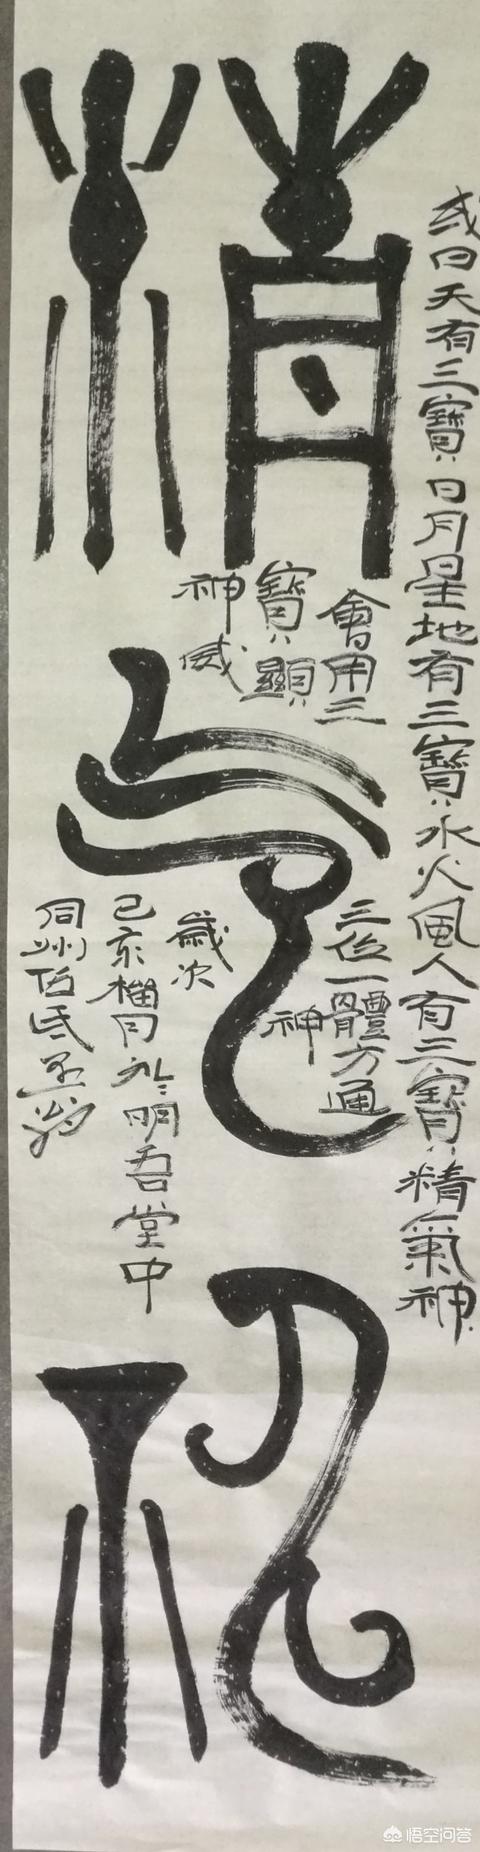 精
气
神
或曰天有三寶日月星地有三寶水火風人有三寶精氣神
會用三
寶顯
神威
三位一體方通
神
歲次
己亥榴月於明吾堂中
同州
悟空问答